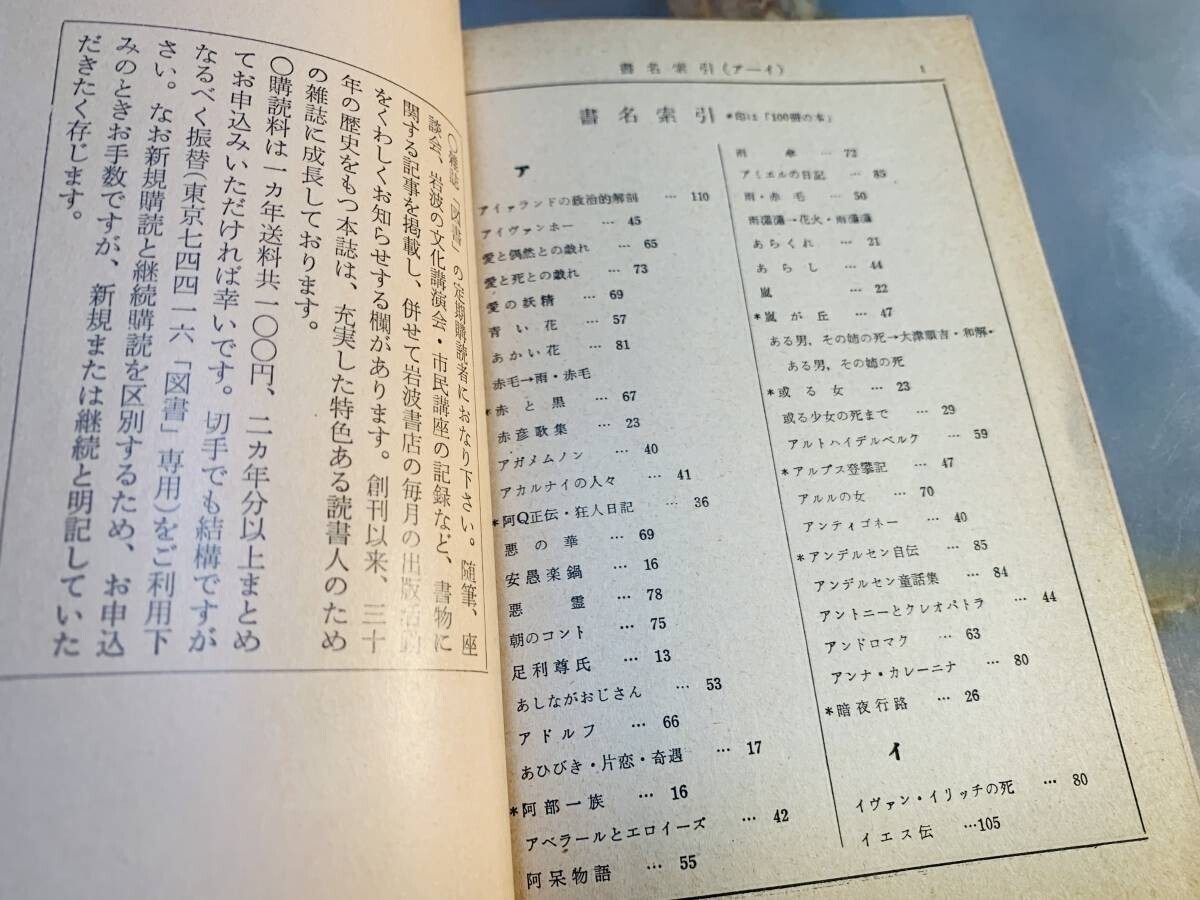 〇雑誌「図書」の定期購読者におなり下さい。随筆、座
談会、岩波の文化講演会・市民講座の記録など、書物に
関する記事を掲載し、併せて岩波書店の毎月の出版活動
をくわしくお知らせする欄があります。創刊以来、三十
年の歴史をもつ本誌は、充実した特色ある読書人のため
の雑誌に成長しております。
〇購読料は一カ年送料共一〇〇円、二カ年分以上まとめ
てお申込みいただければ幸いです。切手でも結構ですが
なるべく振替(東京七四四一六「図書」専用)をご利用下
さい。なお新規購読と継続購読を区別するため、お申込
みのときお手数ですが、新規または継続と明記していた
だきたく存じます。
書名索引(ア―イ) 1
書名索引 *印は「100冊の本」
ア
アイァランドの政治的解剖 … 110
アイヴァンホー … 45
愛と偶然との戯れ … 65
愛と死との戯れ … 73
愛の妖精 … 69
青い花 … 57
あかい花 … 81
赤毛→雨・赤毛
*赤と黒 … 67
赤彦歌集 … 23
アガメムノン … 40
アカルナイの人々 … 41
*阿Q正伝・狂人日記 … 36
悪の華 … 69
安愚楽鍋 … 16
悪霊 … 78
朝のコント … 75
足利尊氏 … 13
あしながおじさん … 53
アドルフ … 66
あひびき・片恋・奇遇 … 17
*阿部一族 … 16
アベラールとエロイーズ … 42
阿呆物語 … 55
雨傘 … 72
アミエルの日記 … 85
雨・赤毛 … 50
雨瀟瀟→花火・雨瀟瀟
あらくれ … 21
あらし … 44
嵐 … 22
*嵐が丘 … 47
ある男,その姉の死→大津順吉・和解・
ある男,その姉の死
*或る女 … 23
或る少女の死まで … 29
アルトハイデルベルク … 59
*アルプス登攀記 … 47
アルルの女 … 70
アンティゴネー … 40
*アンデルセン自伝 … 85
アンデルセン童話集 … 84
アントニーとクレオパトラ … 44
アンドロマク … 63
アンナ・カレーニナ … 80
*暗夜行路 … 26
イ
イヴァン・イリッチの死 … 80
イエス伝 …105